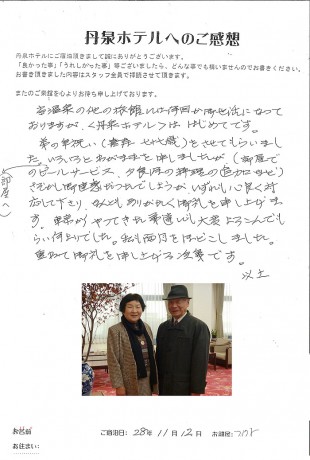 丹泉ホテルへのご感想
丹泉ホテルにご宿泊頂きまして誠にありがとうございます。
「良かった事」「うれしかった事」等ございましたら、どんな事でも構いませんのでお書きください。
お書き頂きました内容はスタッフ全員で拝読させて頂きます。
またのご来館を心よりお待ち申し上げております。
当温泉の他の旅館には何回か御世話になって
おりますが、〈丹泉ホテル〉ははじめてです。
妻の年祝い(喜寿 七十七歳)をさせてもらいまし
た。いろいろとわがままを申しましたが、(部屋で
のビールサービス、夕食時の料理の
さぞかし御迷惑がつたでしょうが、いずれも心良く対
応して下さり、なんともありがたく御礼を申し上げま
す。東京からやってきた も大変よろこんでも
らい何よりでした。私も面目をほどこしました。
重ねて御礼を申し上げる次第です。
以上
(部屋へ)
お名前
お住まい:
ご宿泊日: 28年 11月 12日 お部屋: